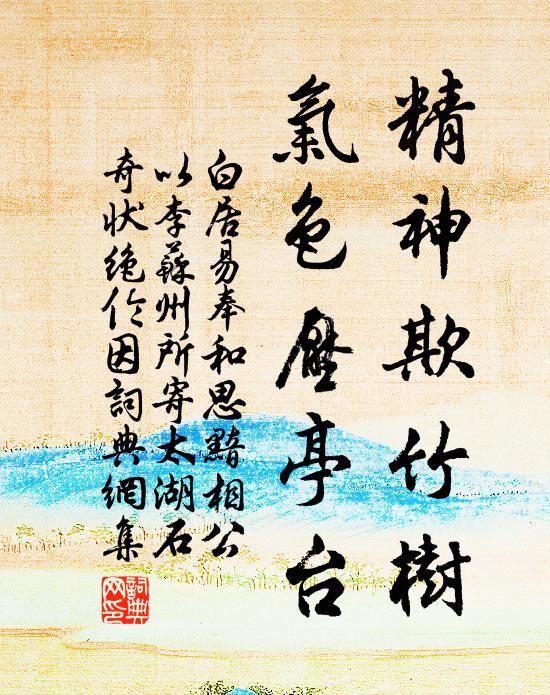 精神欺竹樹
氣色壓亭台
白居易奉和思黯相公
以李蘇州所寄太湖石
奇状絶伦因詞典網集